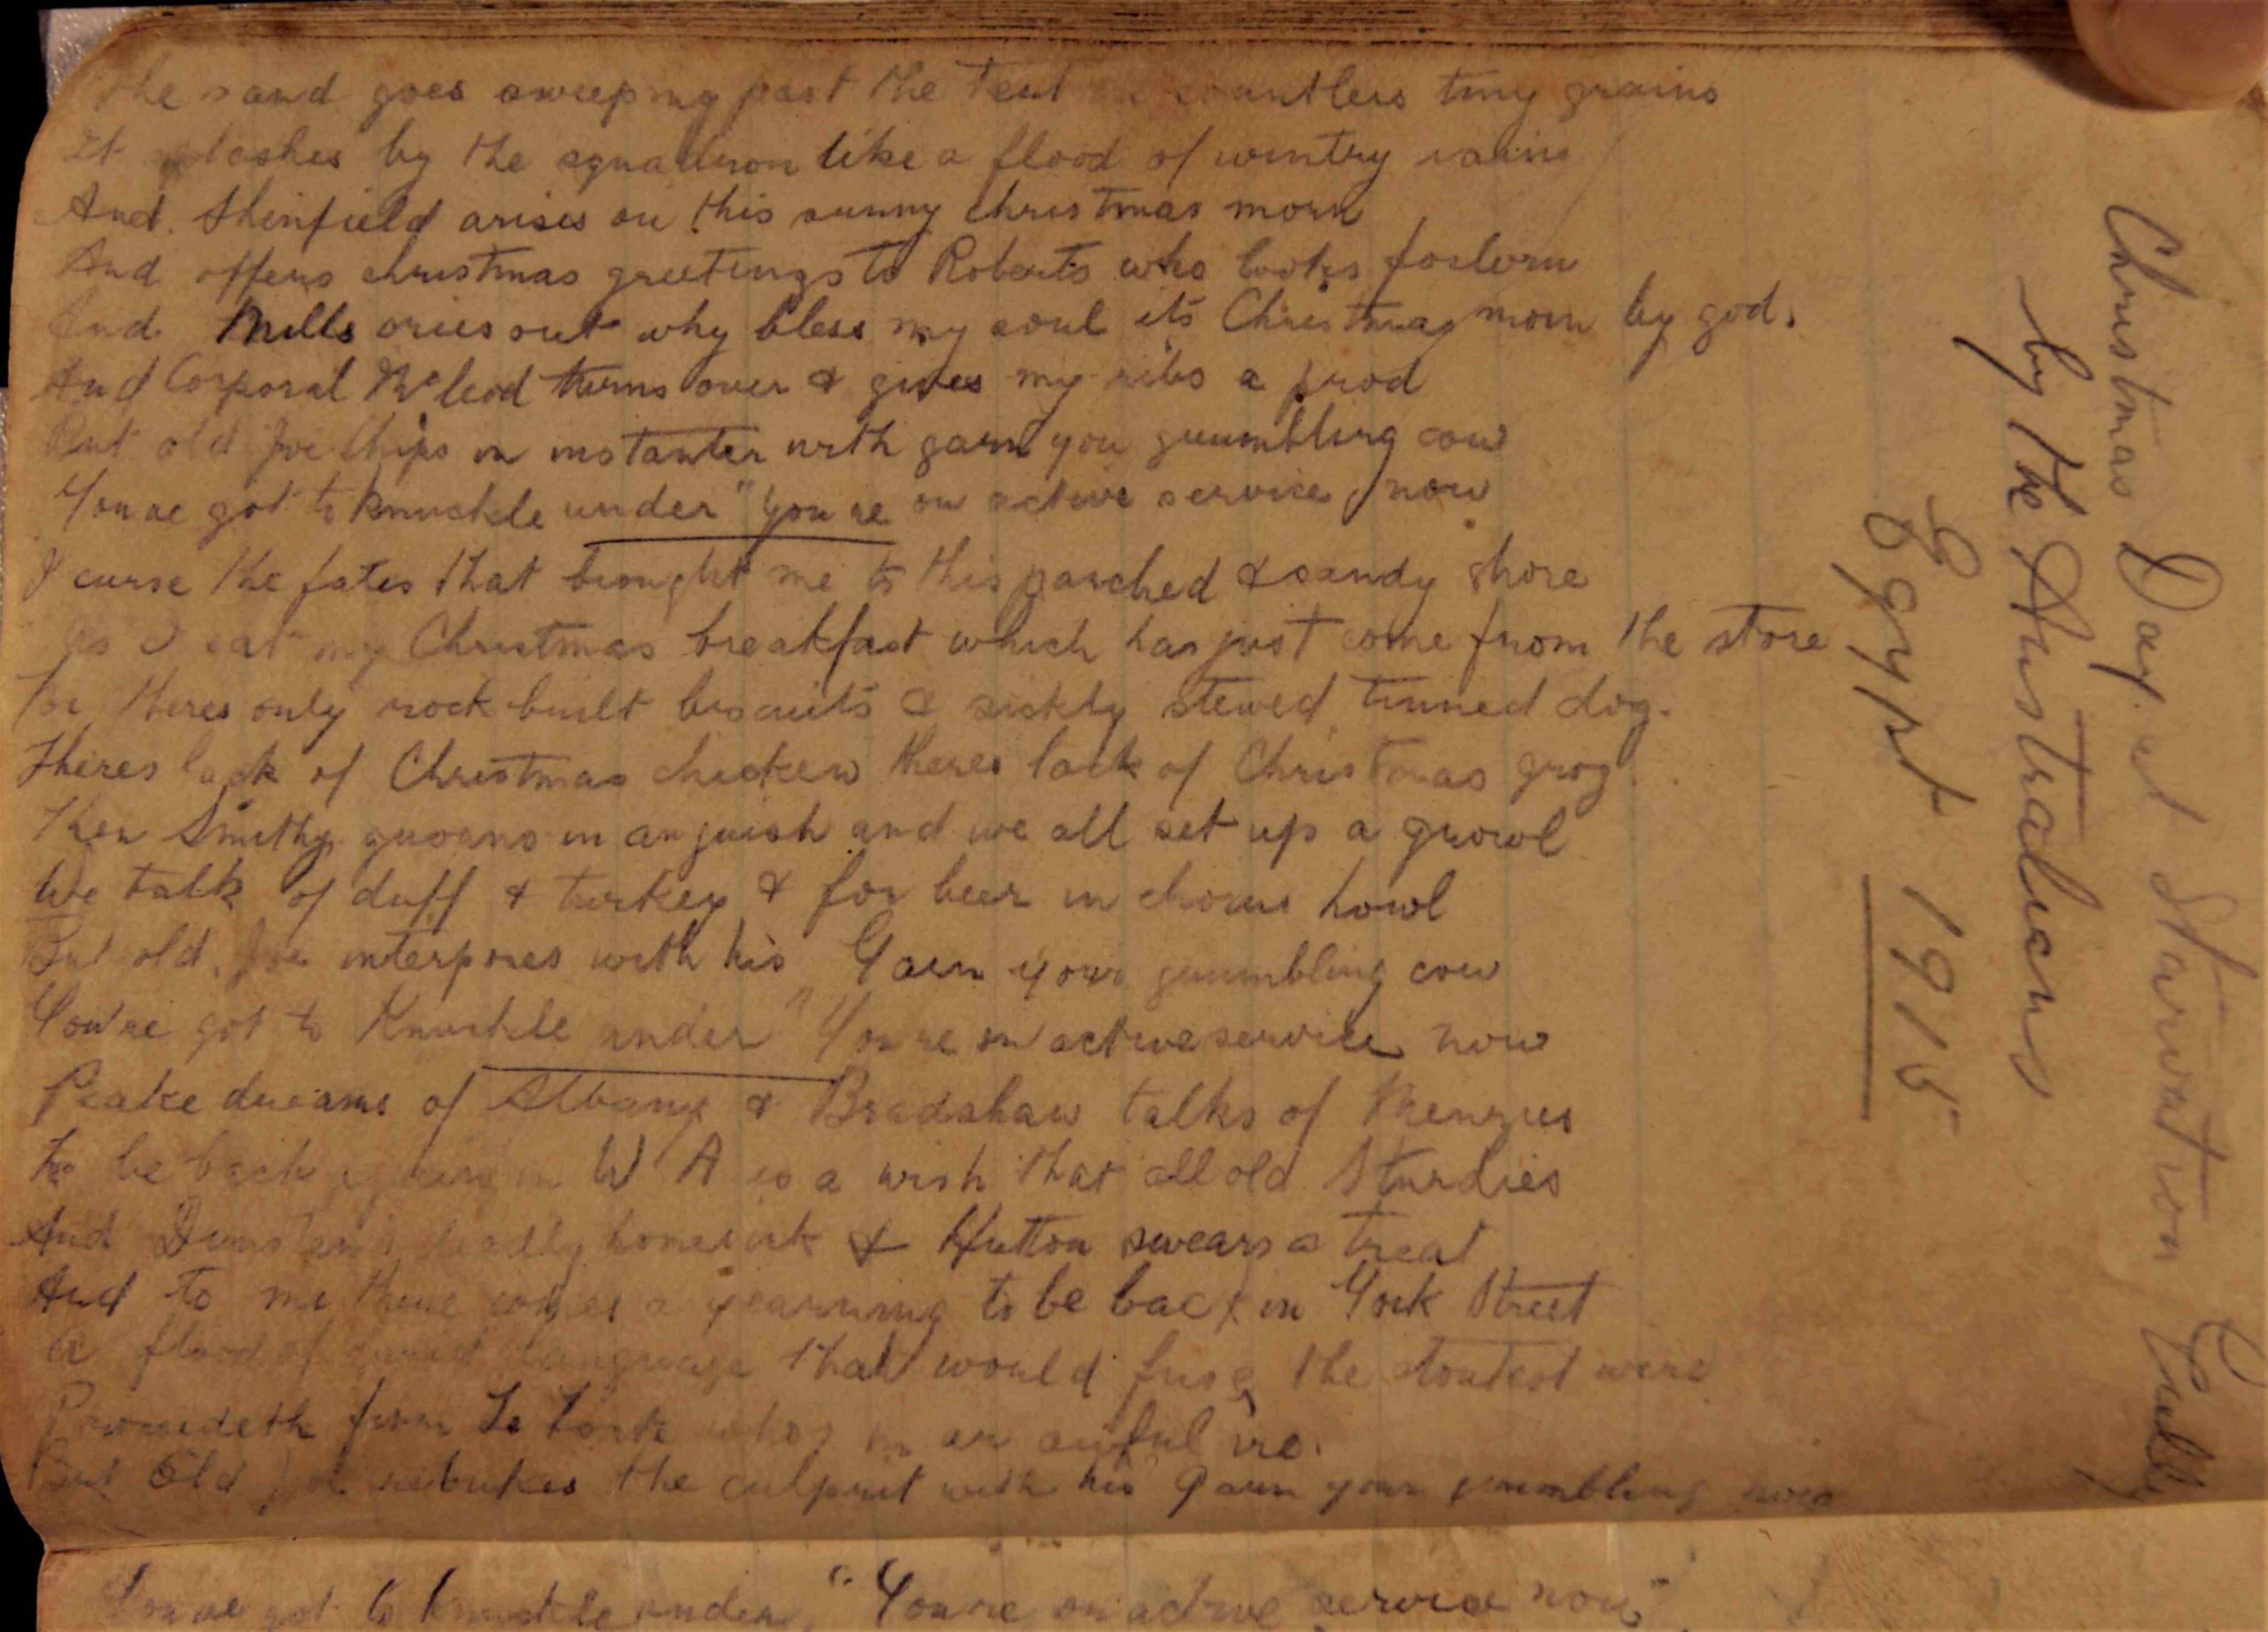 Christmas Day at Starvation Gully
by the Australians
Egypt 1915
The sand goes sweeping past the tent countless tiny grains
It splashes by the squadron like a flood of wintry rains
And Shenfield arises on this sunny christmas morn
And offers christmas greetings to Roberts who looks forlorn
And Mills cries out why bless my soul its Christmas morn by god.
And Corporal McLeod turns over & gives my ribs a prod
But old Joe Chips in instanter with garn you grumbling cow
You've got to knuckle under "You're on active service now
I curse the fates that brought me to this parched & sandy shore
As I eat my Christmas breakfast which has just come from the store
For theres only rock built biscuits & sickly stewed tinned dog.
Theres lack of Christmas chicken theres lack of Christmas grog.
Then Smithy groans in anguish and we all set up a growl
We talk of duff & turkey & for beer in chorus howl
But old Joe interposes with his Garn your grumbling cow
You've got to Knuckle under "You're on active service now
Peake dreams of Albany & Bradshaw talks of Menzies
to be back again in W A is a wish that all old Sturdies
And Dunstan's deadly homesick & Hutton swears a treat
And to me there comes a yearning to be back in York Street
A flood of language that would fuse the stoutest wire
Proceedeth from who's in an awful ire.
But Old Joe rebukes the culprit with his Garn your grumbling cow
You've got to knuckle under, "You're on active service now"